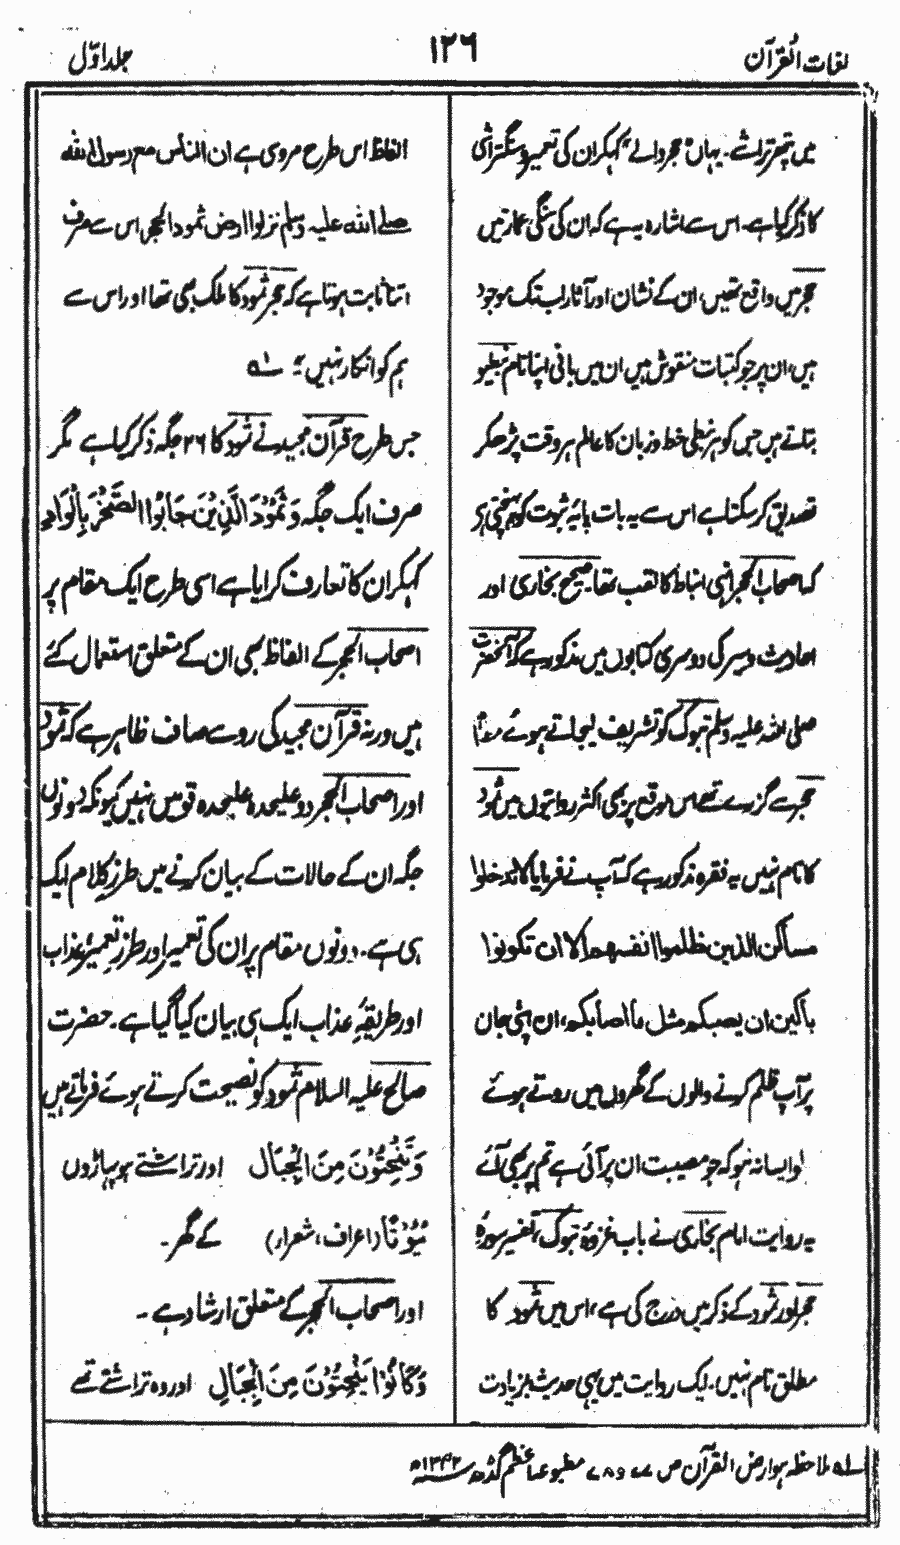 لغات القرآن
۱۲۶
جلد اوّل
میں پتھر تراشے۔ یہاں "حجر والے" کہکر ان کی تعمیر و سنگتراشی
کا ذکر کیا ہے۔ اس سے اشارہ یہ ہے کہ ان کی سنگی عمارتیں
حجر میں واقع تھیں، ان کے نشان اور آثار اب تک موجود
ہیں، ان پر جو کتبات منقوش ہیں ان میں بانی اپنا نام نبطیو
بتاتے ہیں جس کو ہر نبطی خط و زبان کا عالم ہر وقت پڑھکر
تصدیق کر سکتا ہے اس سے یہ بات پایۂ ثبوت کو پہنچتی ہی
کہ اصحاب الحجر انہی انباط کا لقب تھا۔ صحیح بخاری اور
احادیث و سیر کی دوسری کتابوں میں مذکور ہے کہ آنحضرت
صلی اللہ علیہ وسلم تبوک کو تشریف لیجاتے ہوئے
حجر سے گزرے تھے اس موقع پر بھی اکثر روایتوں میں ثمود
کا نام نہیں یہ فقرہ مذکور ہے کہ آپ نے فرمایا لا تدخلوا
مساکن الذین ظلموا انفسھم الا ان تکونوا
باکین ان یصیبکم مثل ما اصابکم، ان اپنی جان
پر آپ ظلم کرنے والوں کے گھروں میں روتے ہوئے
تو ایسا نہ ہو کہ جو مصیبت ان پر آئی ہے تم پر بھی آئے
یہ روایت امام بخاری نے باب غزوۂ تبوک، تفسیر سورۂ
حجر اور ثمود کے ذکر میں درج کی ہے، اس میں ثمود کا
مطلق نام نہیں۔ ایک روایت میں یہی حدیث بزیادت
الفاظ اس طرح مروی ہے ان الناس مع رسول اللہ
صلے اللہ علیہ وسلم نزلوا ارض ثمود الحجر اس سے صرف
اتنا ثابت ہوتا ہے کہ حجر ثمود کا ملک بھی تھا اور اس سے
ہم کو انکار نہیں؛؛ ۱؎
جس طرح قرآن مجید نے ثمود کا ۲۶ جگہ ذکر کیا ہے مگر
صرف ایک جگہ وَثَمُوْدَ الَّذِيْنَ جَابُوا الصَّخْرَ بِالْوَادِ
کہکر ان کا تعارف کرایا ہے اسی طرح ایک مقام پر
اصحاب الحجر کے الفاظ بھی ان کے متعلق استعمال کئے
ہیں ورنہ قرآن مجید کی رو سے صاف ظاہر ہے کہ ثمود
اور اصحاب الحجر دو علیحدہ علیحدہ قومیں نہیں کیونکہ دونوں
جگہ ان کے حالات کے بیان کرنے میں طرز کلام ایک
ہی ہے۔ دونوں مقام پر ان کی تعمیر اور طرز تعمیر، عذاب
اور طریقۂ عذاب ایک ہی بیان کیا گیا ہے۔ حضرت
صالح علیہ السلام ثمود کو نصیحت کرتے ہوئے فرماتے ہیں
وَتَنْحِتُوْنَ مِنَ الْجِبَالَ اور تراشتے ہو پہاڑوں
بُيُوْتًا (اعراف، شعرار) کے گھر۔
اور اصحاب الحجر کے متعلق ارشاد ہے۔
وَكَانُوْا يَنْحِتُوْنَ مِنَ الْجِبَالِ اور وہ تراشتے تھے
۱؎ ملاحظہ ہو ارض القرآن ص ۷۷ و ۸۹ ے مطبوعہ اعظم گڈھ ۱۳۴۲ھ